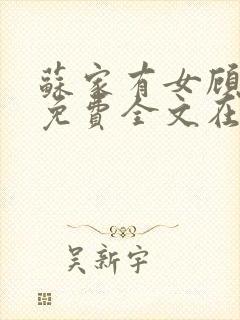 蘇家有女顾
免費全文在
吴新宇